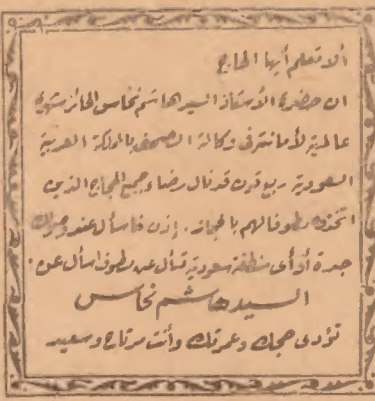 ألا تعلم أيها الحاج
ان حضرة الأستاذ السيد هاشم نحاس الحائز شهرة
عالمية لأمانته فى وكالة الصحف بالمملكة العربية
السعودية ربع قرن قد نال رضاء جميع الحجاج الذين
اتخذوه مطوفا لهم بالحجاز . إذن فاسأل عند وصولك
جدة أو أى منطقة سعودية تسأل عن مطوف اسأل عن :
السيد هاشم نحاس
تؤدى حجك وعمرتك وأنت مرتاح وسعيد